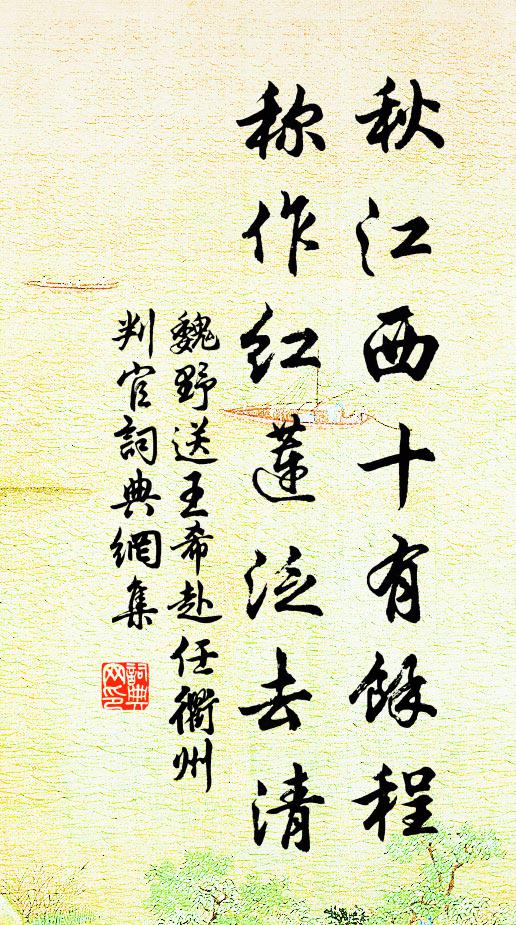 秋江西十有餘程
称作红蓮泛去清
魏野送王希赴任衢州
判官詞典網集
詞典网印